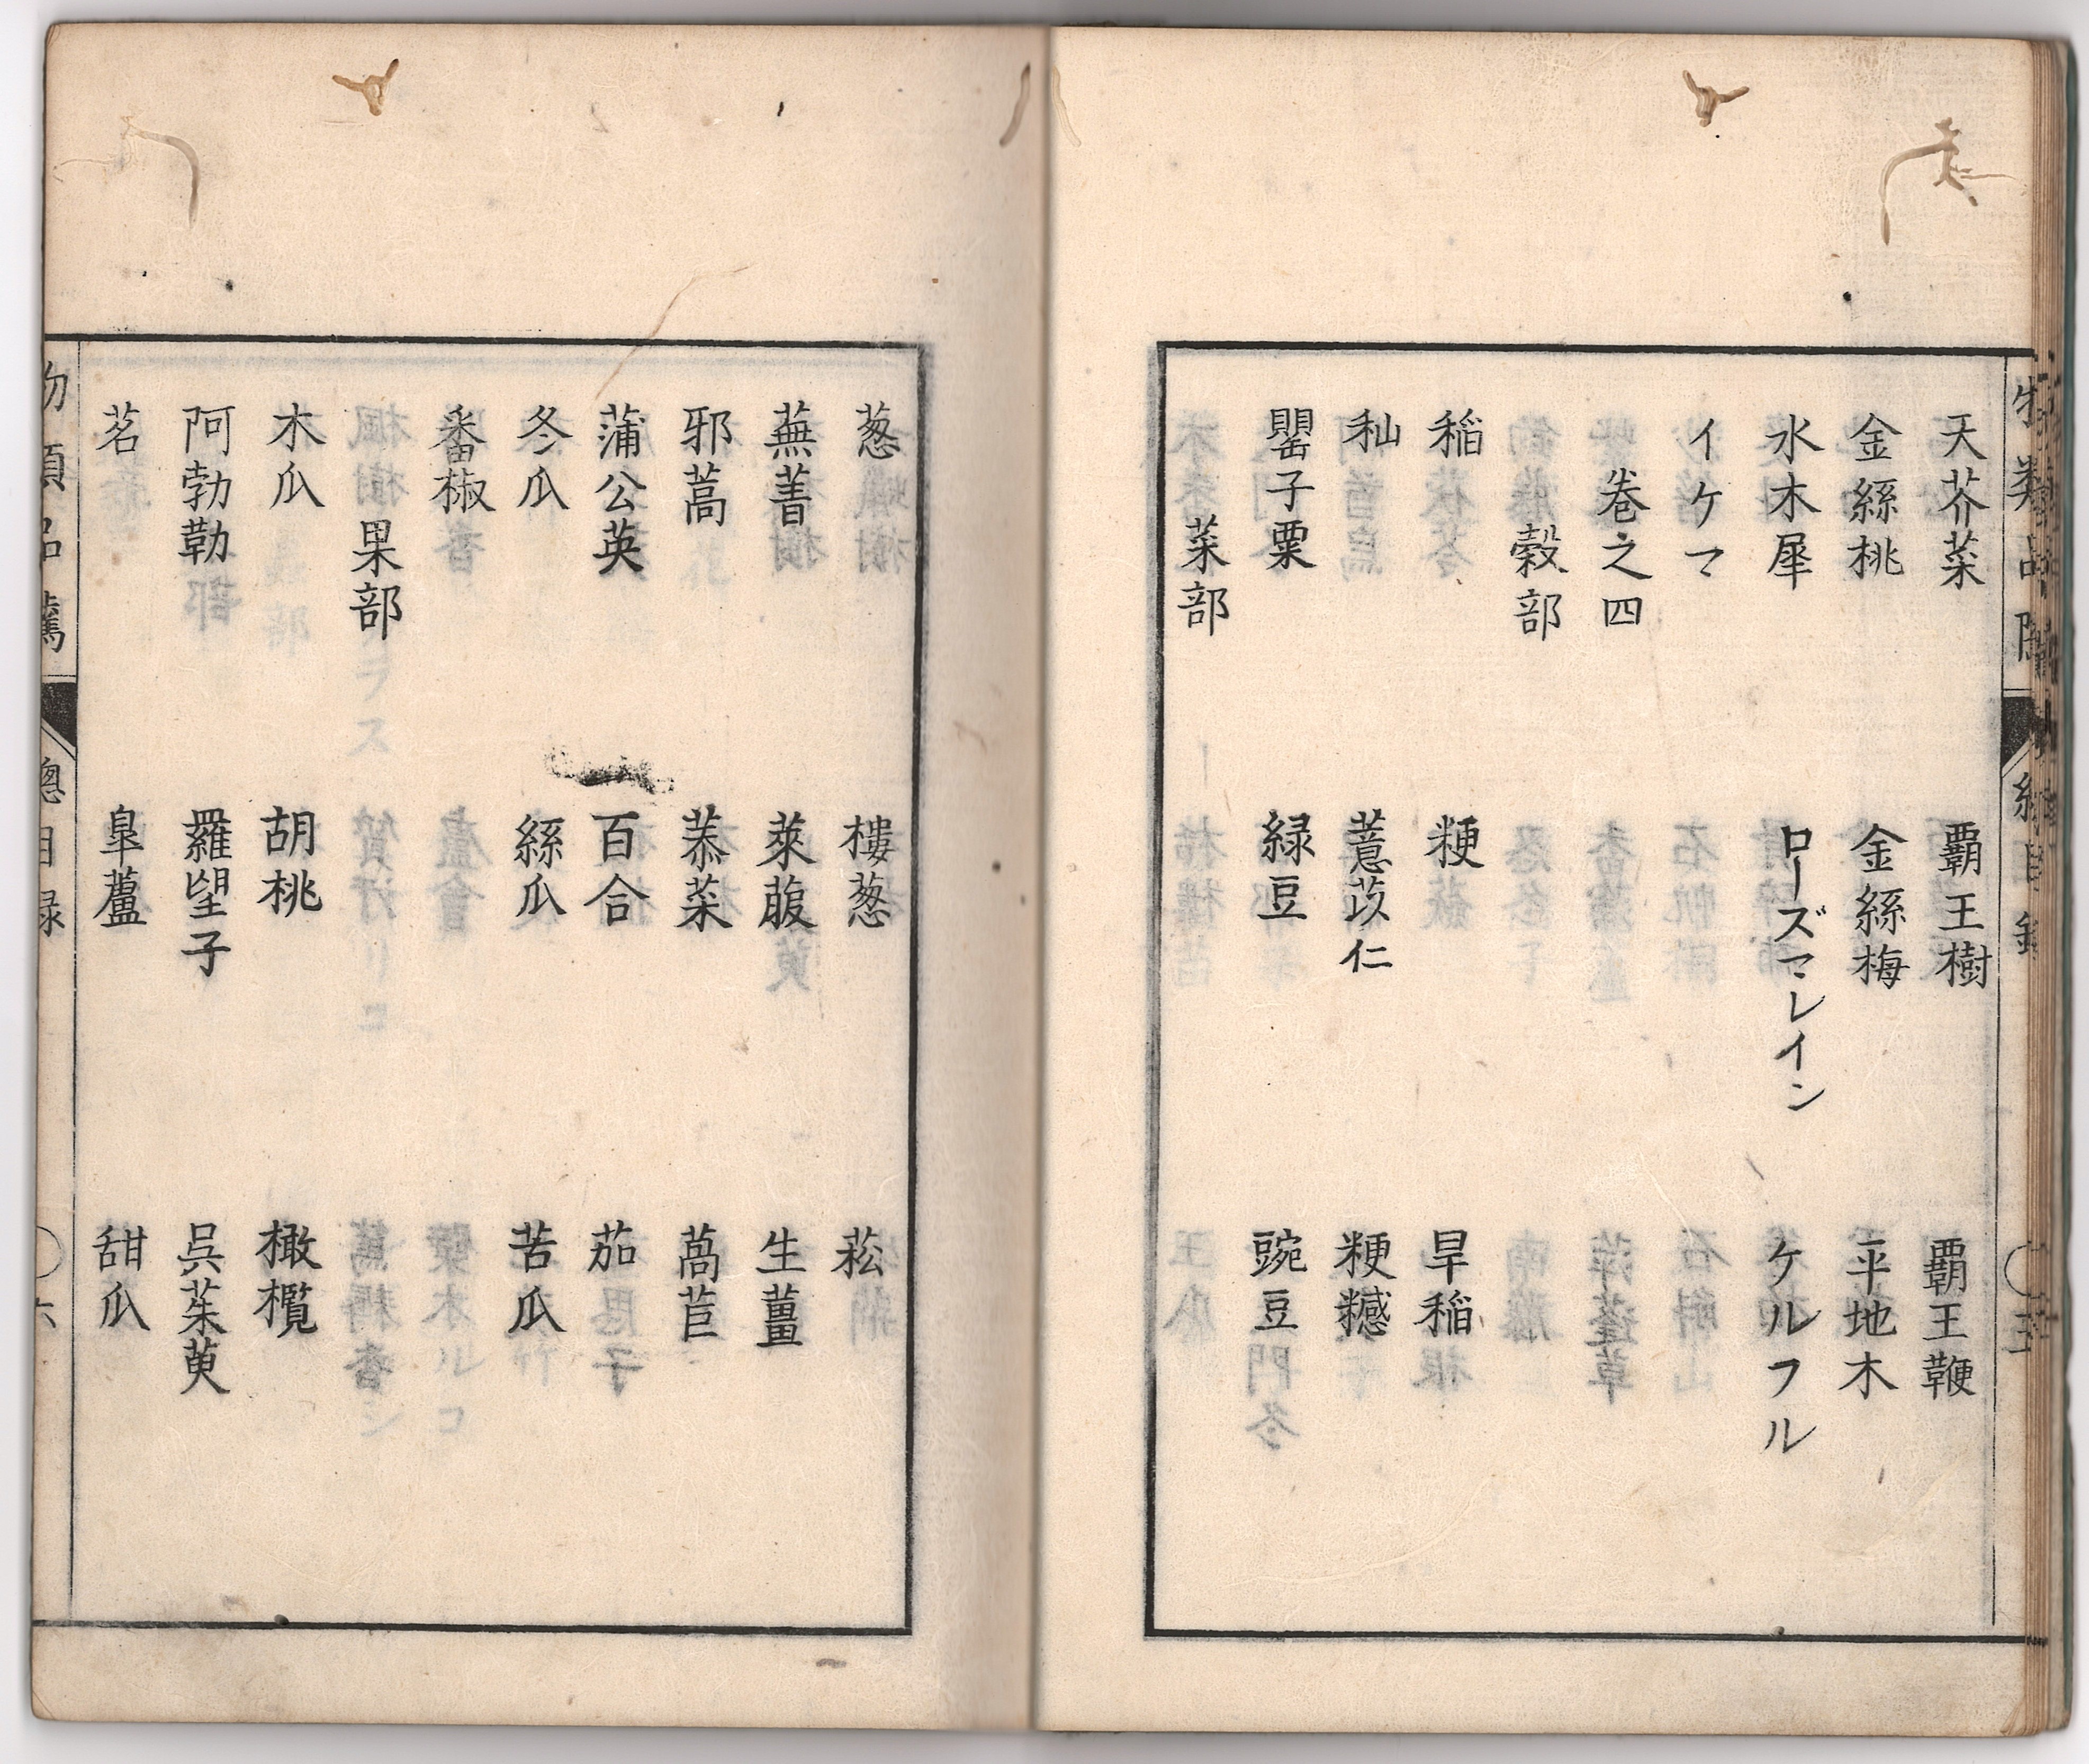 天芥菜 覇王樹 覇王鞭
金絲桃 金絲梅 平地木
水木犀 ローズマレイン ケルフル
イケマ
巻之四
穀部
稲 粳 旱稲
秈 薏苡仁 粳𥽇
罌子粟 緑豆 豌豆
菜部
葱 樓葱 菘
蕪菁 萊菔 生薑
邪蒿 菾菜 萵苣
蒲公英 百合 茄
冬瓜 絲瓜 苦瓜
番椒
果部
木瓜 胡桃 橄欖
阿勃勒 羅望子 呉茱萸
茗 皐蘆 甜瓜
物類品隲 總目録 六